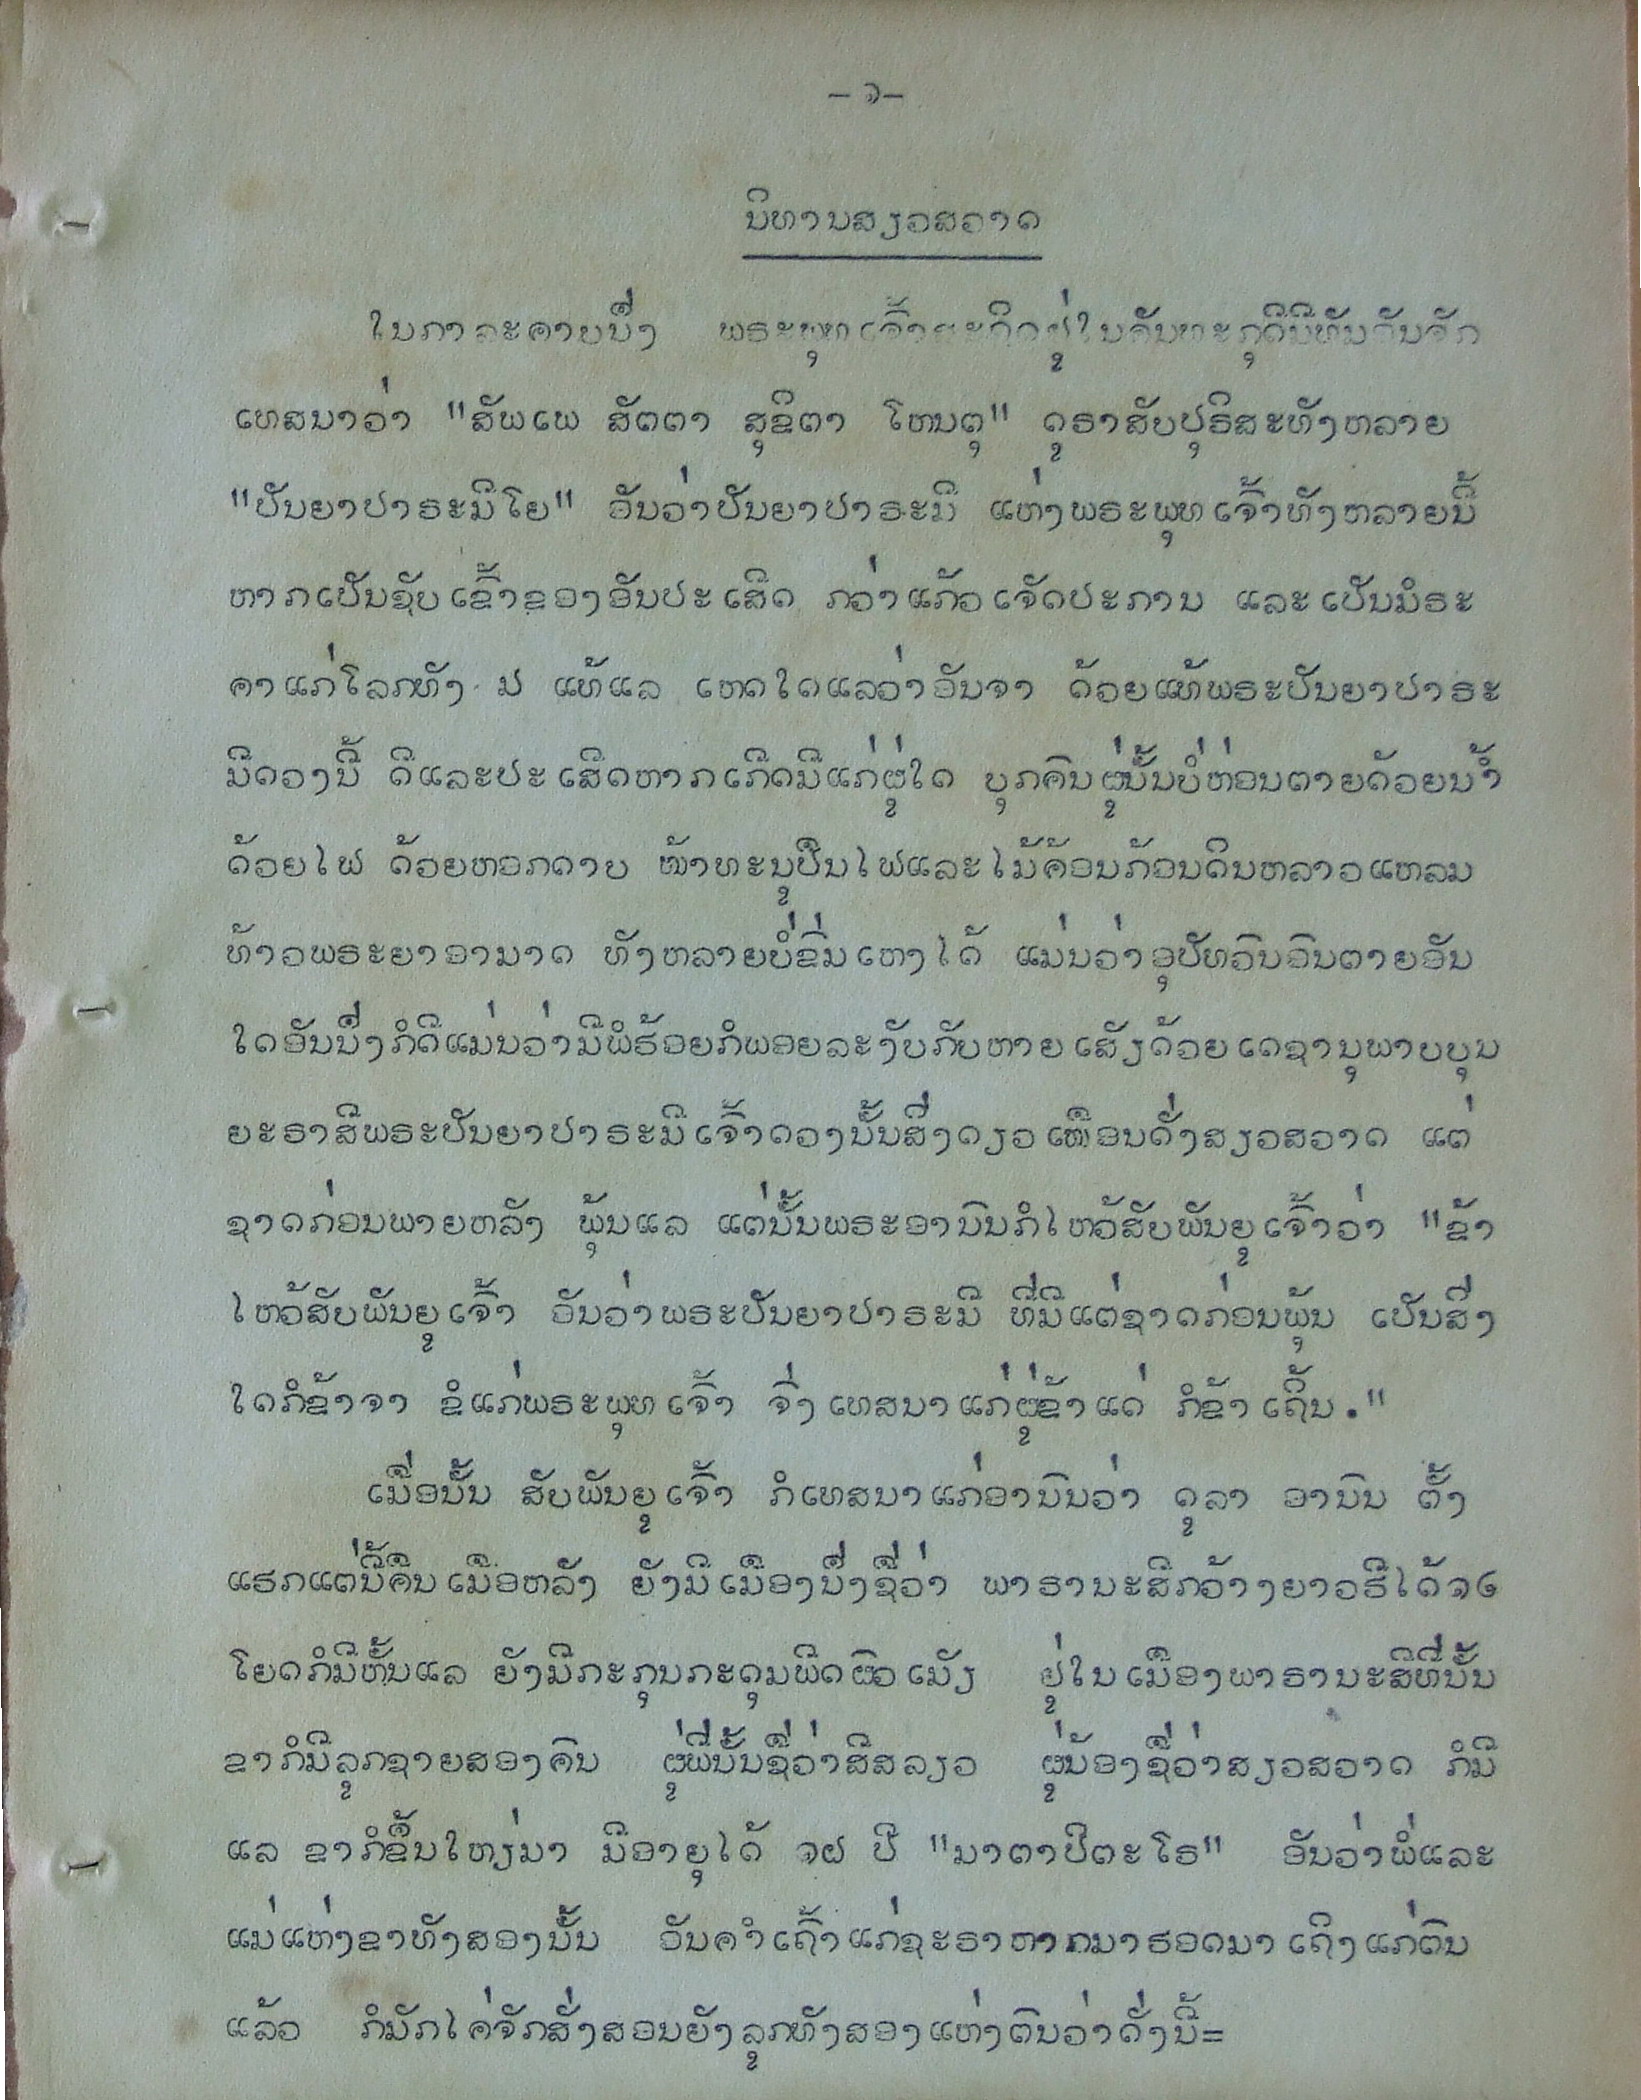 - ໑ -
ນິທານສຽວສວາດ
ໃນກາລະຄາບນຶ່ງ ພຣະພຸທເຈົ້າສະຖິດຢູ່ໃນຄັນທະກຸດີມີຫັ້ນ ຈັກ
ເທສນາວ່າ "ສັພເພ ສັຕຕາ ສຸຂິຕາ ໂຫນຕຸ" ດູຣາສັບປຸຣິສະທັງຫລາຍ
"ປັນຍາປາຣະມີໂຍ" ອັນວ່າປັນຍາປາຣະມີ ແຫ່ງພຣະພຸທເຈົ້າທັງຫລາຍນີ້
ຫາກເປັນຊັບເຂົ້າຂອງອັນປະເສີດ ກວ່າແກ້ວເຈັດປະການ ແລະເປັນມໍຣະ
ຄາແກ່ໂລກທັງ ໓ ແທ້ແລ ເຫດໃດແລວ່າອັນຈາ ດ້ວຍແທ້ພຣະປັນຍາປາຣະ
ມີດວງນີ້ ດີແລະປະເສີດຫາກເກີດມີແກ່ຜູ່ໃດ ບຸກຄົນຜູ່ນັ້ນບໍ່ຫ່ອນຕາຍດ້ວຍນ້ຳ
ດ້ວຍໄຟ ດ້ວຍຫອກດາບ ໜ້າທະນູປືນໄຟແລະໄມ້ຄ້ອນກ້ອນດິນຫລາວແຫລມ
ທ້າວພຣະຍາອາມາດ ທັງຫລາຍບໍ່ຂົ່ມເຫງໄດ້ ແມ່ນວ່າອຸປັທວົນອົນຕາຍອັນ
ໃດອັນນຶ່ງກໍດີແມ່ນວ່າມີພໍຮ້ອຍກໍພອຍລະງັບກັບຫາຍເສັຽດ້ວຍເດຊານຸພາບບຸນ
ຍະຣາສີພຣະປັນຍາປາຣະມີເຈົ້າດວງນັ້ນສິ່ງດຽວເໝືອນດັ່ງສຽວສວາດ ແຕ່
ຊາດກ່ອນພາຍຫລັງ ພຸ້ນແລ ແຕ່ນັ້ນພຣະອານົນກໍໄຫວ້ສັບພັນຍູເຈົ້າວ່າ "ຂ້າ
ໄຫວ້ສັບພັນຍູເຈົ້າ ອັນວ່າພຣະປັນຍາປາຣະມີ ທີ່ມີແຕ່ຊາດກ່ອນພຸ້ນ ເປັນສິ່ງ
ໃດກໍຂ້າຈາ ຂໍແກ່ພຣະພຸທເຈົ້າ ຈົ່ງເທສນາແກ່ຜູ່ຂ້າແດ່ ກໍຂ້າເຖີ້ນ."
ເມື່ອນັ້ນ ສັບພັນຍູເຈົ້າ ກໍເທສນາແກ່ອານົນວ່າ ດູລາ ອານົນ ຕັ້ງ
ແຮກແຕ່ນີ້ຄືນເມື່ອຫລັງ ຍັງມີເມືອງນຶ່ງຊື່ວ່າ ພາຣານະສີກວ້າງຍາວຣີໄດ້໑໒
ໂຍດກໍມີຫັ້ນແລ ຍັງມີກະກຸນກະດຸມພີດຜົວເມັຽ ຢູ່ໃນເມືອງພາຣານະສີທີ່ນັ້ນ
ຂາກໍມີລູກຊາຍສອງຄົນ ຜູ່ພີ່ນັ້ນຊື່ວ່າສີສລຽວ ຜູ່ນ້ອງຊື່ວ່າສຽວສວາດ ກໍມີ
ແລ ຂາກໍຂຶ້ນໃຫຽ່ມາ ມີອາຍຸໄດ້ ໑໕ ປີ "ມາຕາປີຕະໂຣ" ອັນວ່າພໍ່ແລະ
ແມ່ແຫ່ງຂາທັງສອງນັ້ນ ອັນຄຳເຖົ້າແກ່ຊະຣາຫາກມາຮອດມາເຖິງແກ່ຕົນ
ແລ້ວ ກໍມັກໄຄ່ຈັກສັ່ງສອນຍັງລູກທັງສອງແຫ່ງຕົນວ່າດັ່ງນີ້=